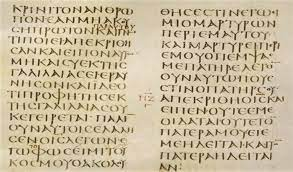 ΚΡΙΝΙΤΟΝΑΝΘΡΩ
ΠΟΝΕΑΝΜΗΑΚΟΥ
ϹΗΠΡΩΤΟΝ
ΤΙΠΟΙΕΙΑΠΕΚΡΙΘΗ
ϹΑΝΚΑΙΕΙΠΟΝΑΥΤΩ
ΜΗΚΑΙϹΥΕΚΤΗϹ
ΓΑΛΙΛΑΙΑϹΕΙΕΡΑΥ
ΝΗϹΟΝΚΑΙΙΔΕΟ
ΤΙΠΡΟΦΗΤΗϹΕΚ
ΤΗϹΓΑΛΙΛΑΙΑϹΟΥ
ΚΕΓΕΙΡΕΤΑΙΠΑΛΙ
ΟΥΝΑΥΤΟΙϹΕΛΑΛΗ
ϹΕΝΟΙϹΛΕΓΩΝ
ΤΟΦΩϹΕΙΜΙΤΟΥ
ΚΟϹΜΟΥΟΑΚΟΛΟΥ
ΘΗϹΕϹΤΙΝΕΓΩΕΙ
ΜΙΟΜΑΡΤΥΡΩΝ
ΠΕΡΙΕΜΑΥΤΟΥ
ΚΑΙΜΑΡΤΥΡΕΙΠΕ
ΡΙΕΜΟΥΟΠΕΜΨΑϹ
ΜΕΠΑΤΗΡΕΛΕΓΟΝ
ΟΥΝΑΥΤΩΠΟΥΕϹΤΙ
ΟΠΑΤΗΡϹΟΥ
ΑΠΕΚΡΙΘΟΙϹΚΑΙ
ΕΙΠΕΝΟΥΤΕΕΜΕ
ΟΙΔΑΤΕΟΥΤΕΤΟΝ
ΠΑΤΕΡΑΜΟΥΕΙΕ
ΜΕΗΔΕΙΤΕΚΑΙΤΟΝ
ΠΑΤΕΡΑΗΔΕΙΤΕ
ΑΝ